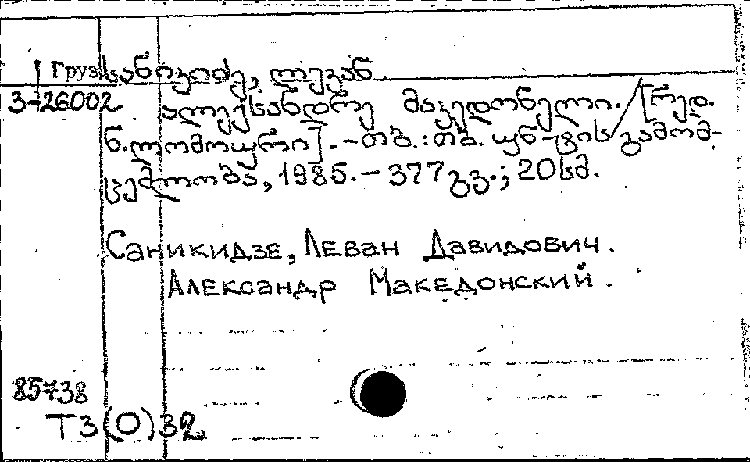 Груз
სანიკიძე, ლევან
3-26002
ალექსანდრე მაკედონელი. / [რედ.
ნ. ლომოური]. – თბ. : თბ. უნ-ტის გამომ-
ცემლობა, 1985. – 377 გვ. ; 20 სმ.
Саникидзе, Леван Давидович.
Александр Македонский.
85738
Т3(0)32